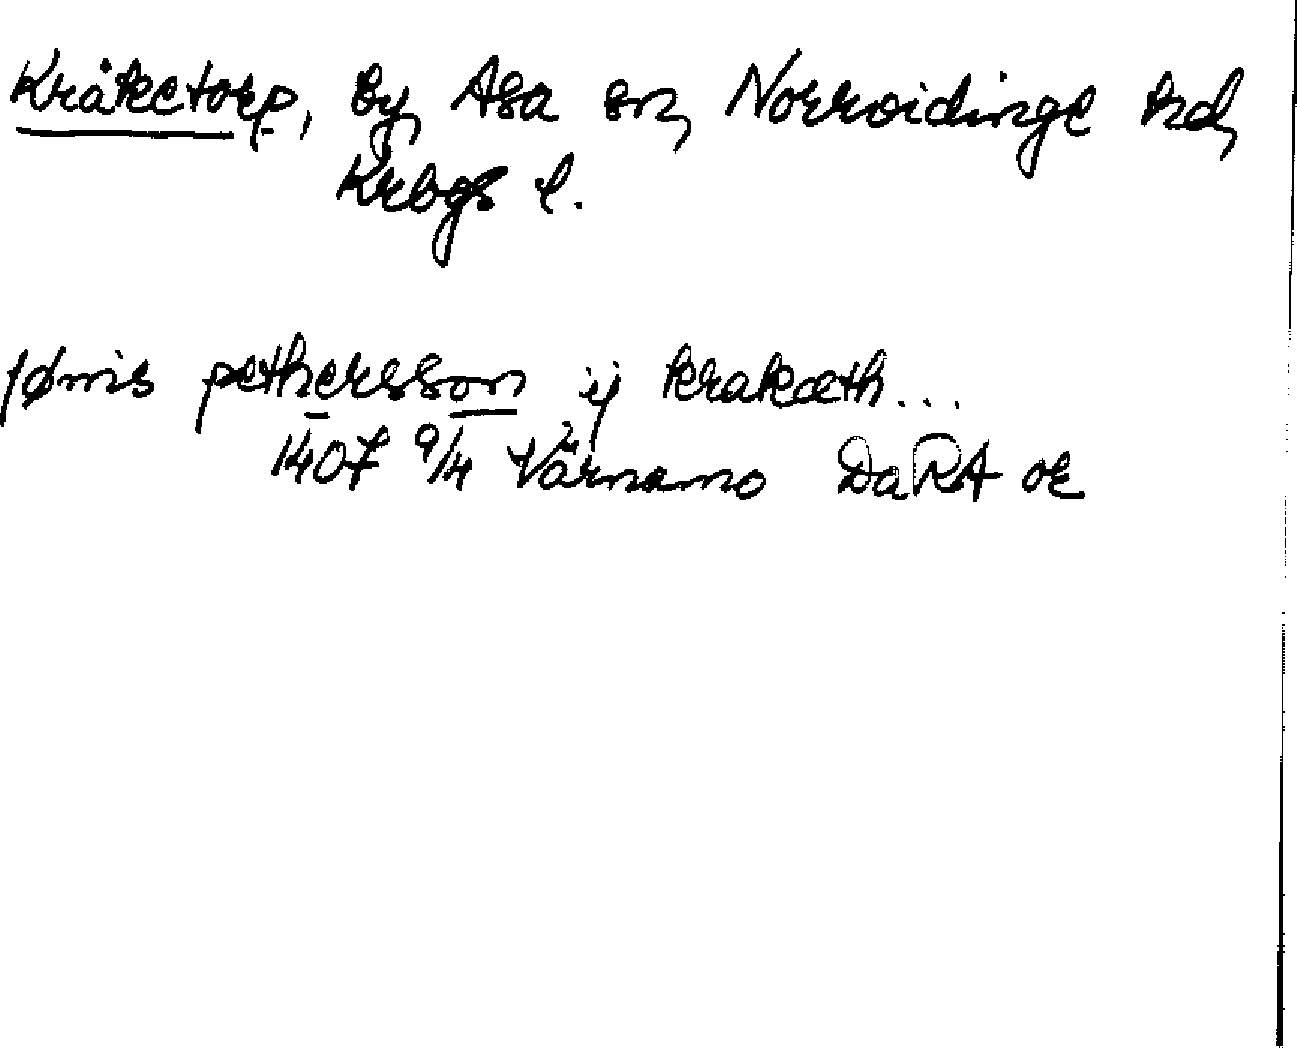 Kråketorp, by, Asa sn, Norrvidinge hd,
Krbgs l.
jønis pethersson ij krakæth...
1407 9/4 Värnamo DaRA or